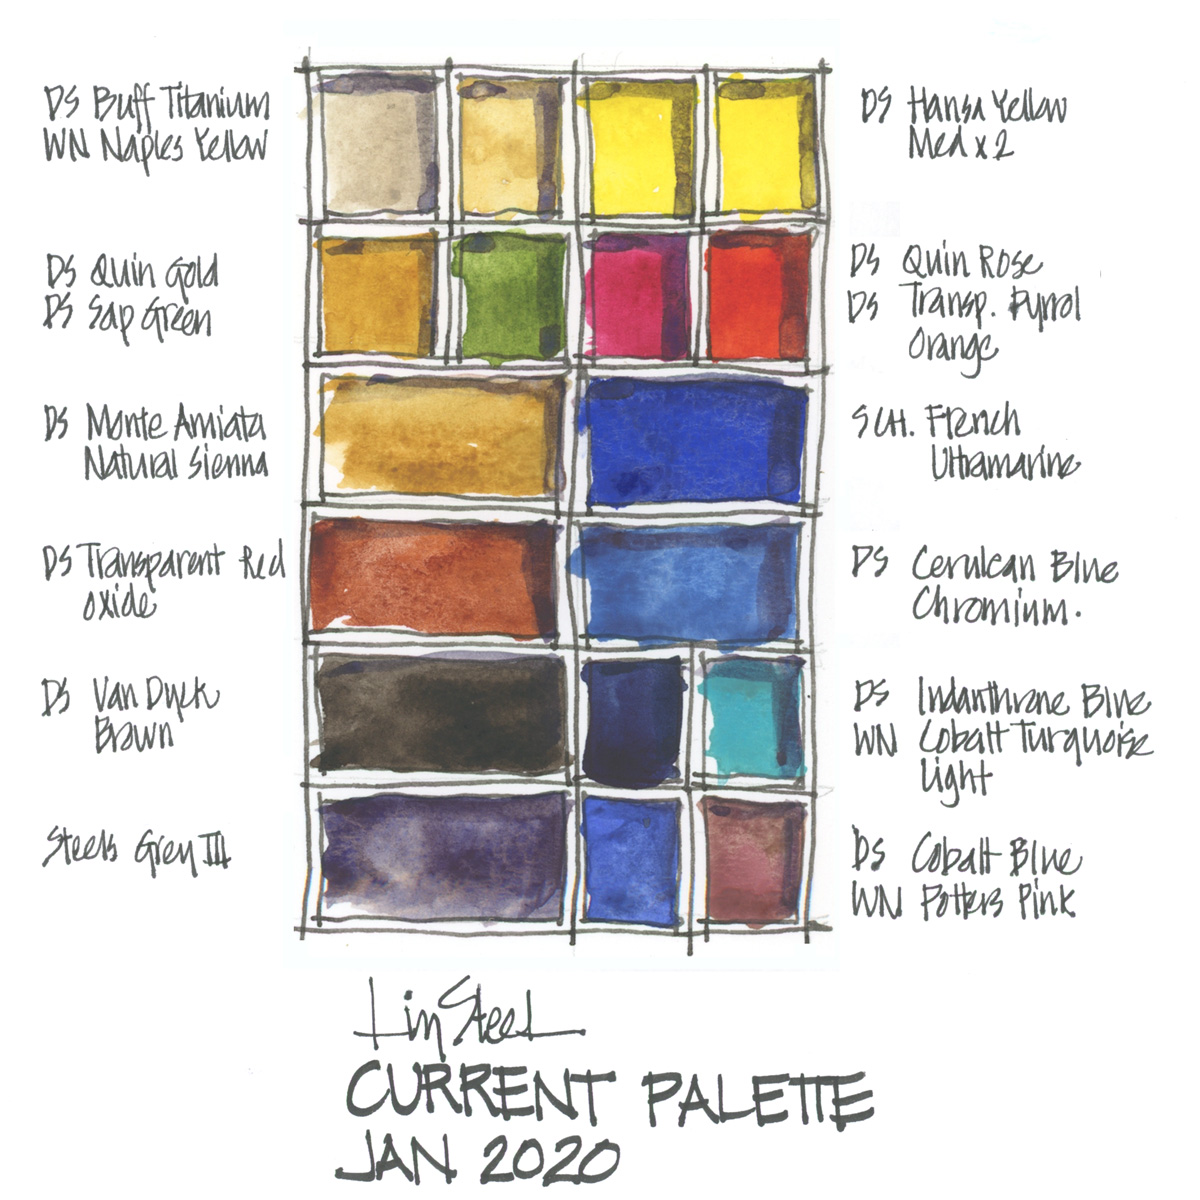 DS Buff Titanium
WN Naples Yellow
DS Hansa Yellow
Med x 2
DS Quin Gold
DS Sap Green
DS Quin Rose
DS Transp. Pyrrol
Orange
DS Monte Amiata
Natural Sienna
SCH. French
Ultramarine
DS Transparent Red
Oxide
DS Cerulean Blue
Chromium.
DS Van Dyck
Brown
DS Indanthrone Blue
WN Cobalt Turquoise
Light
Steels Grey III
DS Cobalt Blue
WN Potters Pink
Liz Steel
CURRENT PALETTE
JAN 2020